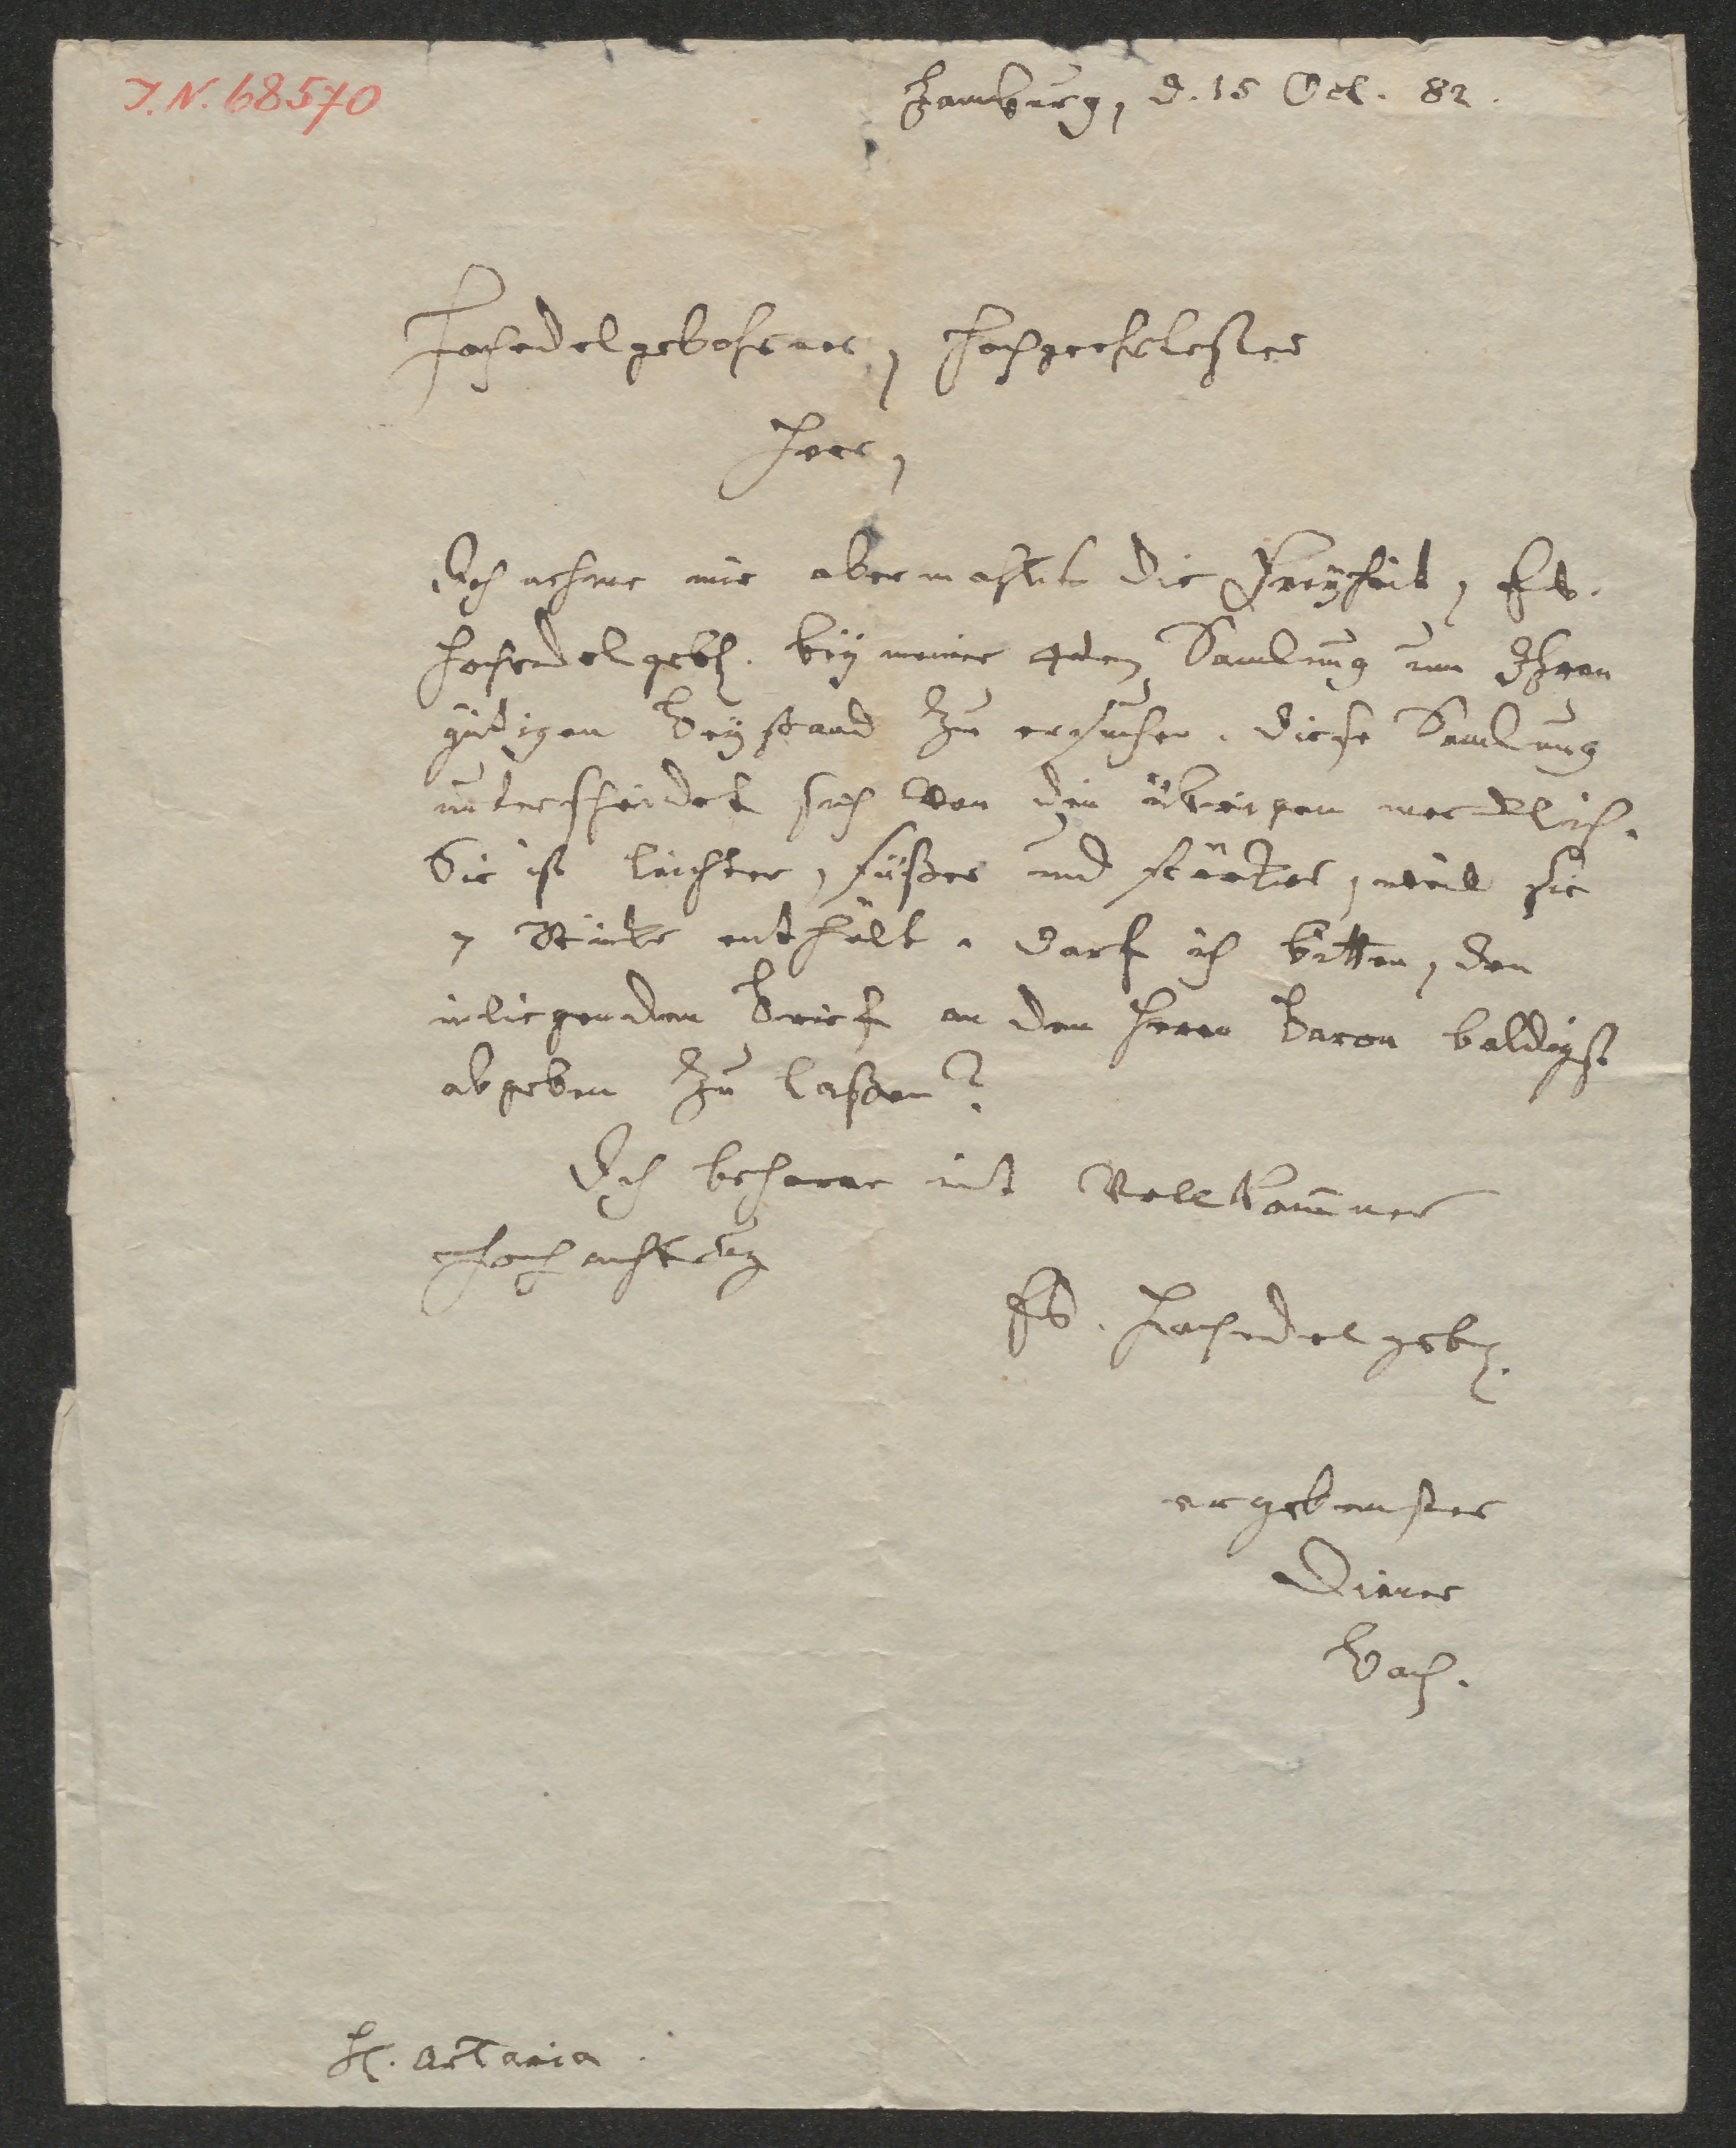 I. N. 68570
Hamburg, d. 15 Oct. 82.
Hochedelgebohrner, Hochgeehrtester
Herr,
Ich nehme mir abermahls die Freyheit, Ew.
Hochedelgeb. bey meiner 4ten Samlung um Ihren
gütigen Beystand zu ersuchen. Diese Samlung
unterscheidet sich von den übrigen mercklich.
Sie ist leichter, süßer und stärker, weil sie
7 Stücke enthält. Darf ich bitten, den
inliegenden Brief an den Herrn Baron baldigst
abgeben zu laßen?
Ich beharre mit Vollkom̄ner
Hochachtung
Ew. Hochedelgeb.
ergebenster
Diener
Bach.
H. Artaria.